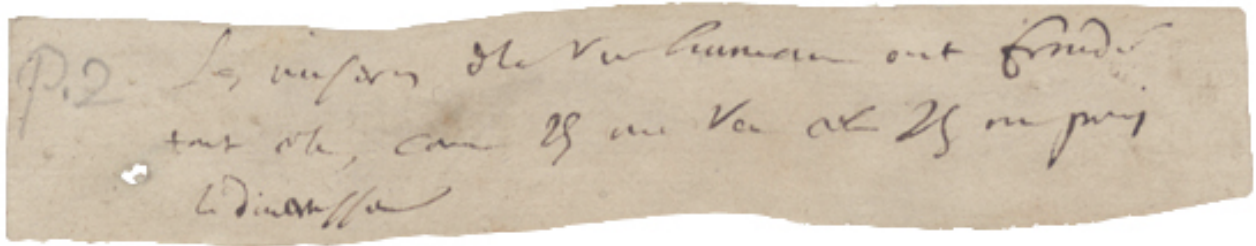 P.2. Les miseres de la vie humaine ont fondé
tout cela, comme ils ont veu cela ils ont pris
le divertissement